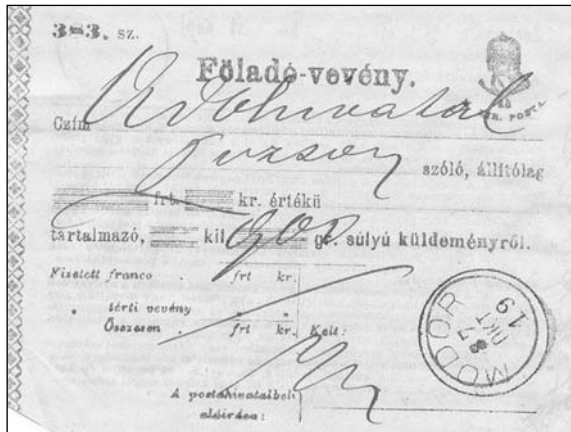 3=3. SZ.
Föladó-vevény.
Czím Adóhivatal
Pozsony szóló, állítólag
frt. kr. értékü
tartalmazó, kil 900 gr. súlyú küldeményről.
Fizetett franco . frt kr.
" térti vevény " "
Összesen . frt kr. Kelt:
A postahivatalbeli
aláírása:
MODOR
OKT
19